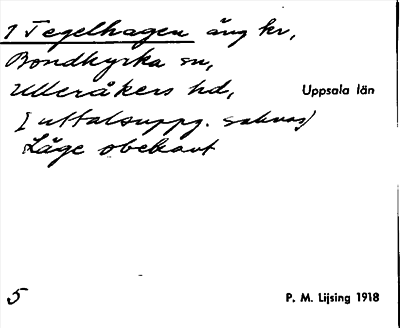 1 Tegelhagen äng kr,
Bondkyrka sn,
Ulleråkers hd, Uppsala län
[uttalsuppg. saknas]
Läge obekant
5 P. M. Lijsing 1918